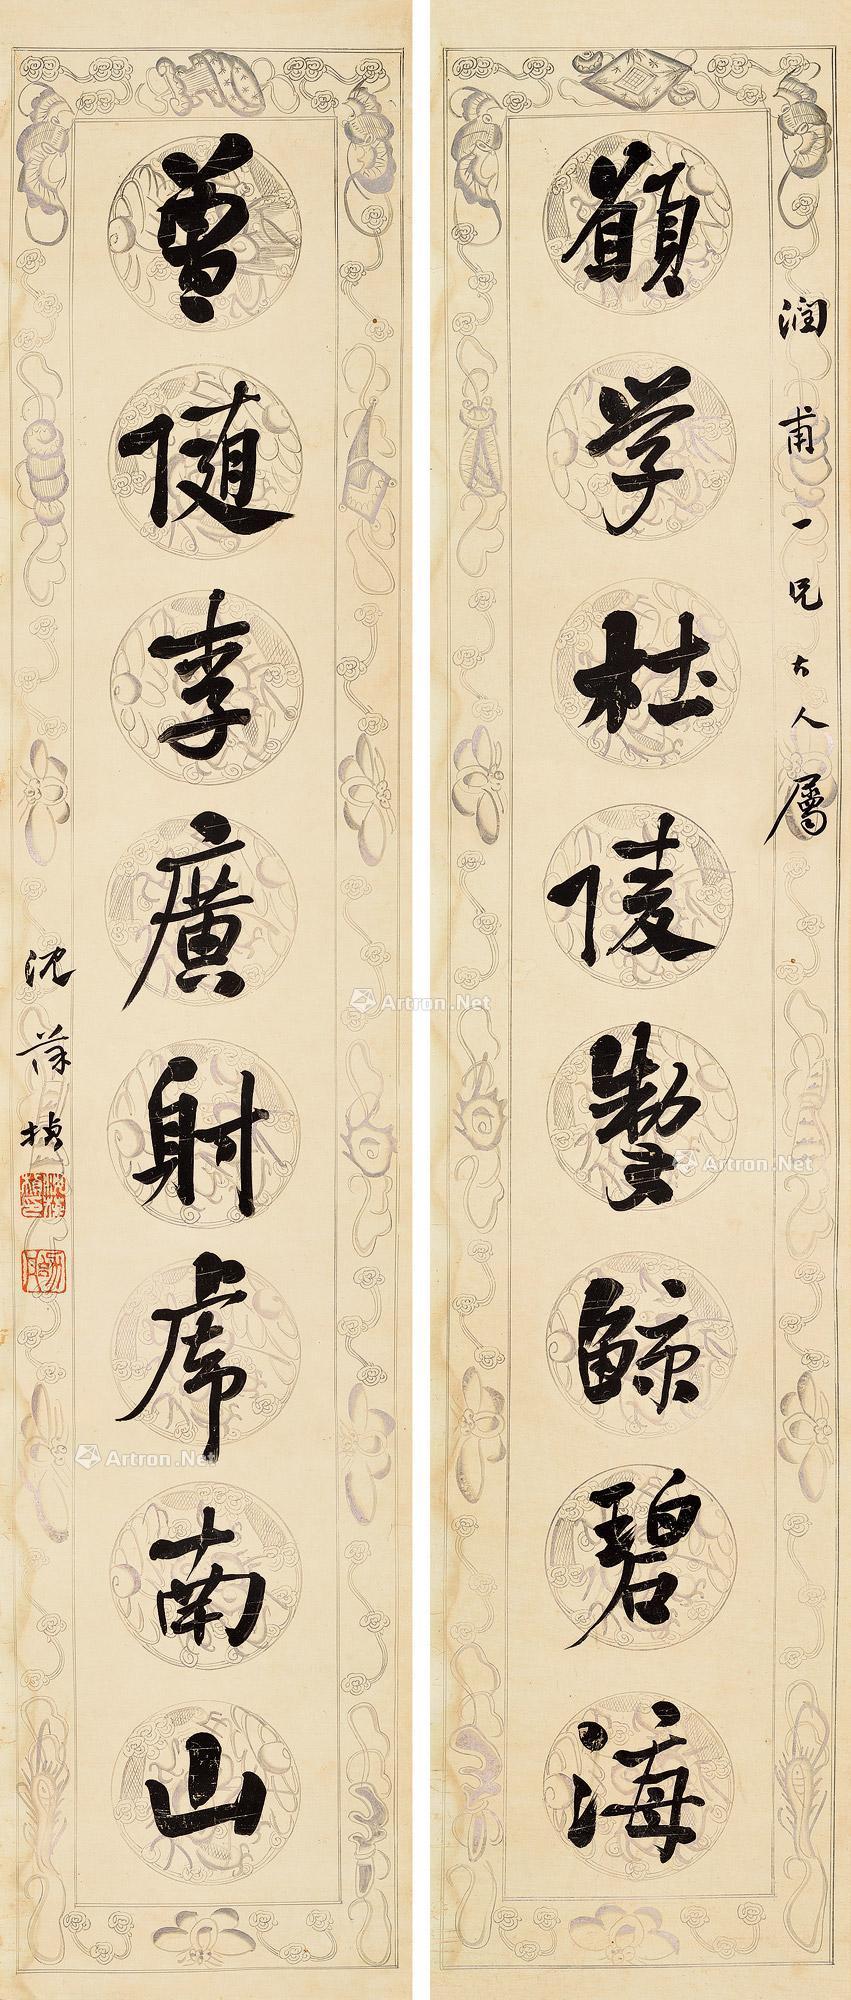 潤甫一兄大人屬
願学杜陵掣鯨碧海
曾随李廣射虎南山
沈葆楨
沈葆楨印
幼丹
Artron.Net
Artron.Net
Artron.Net